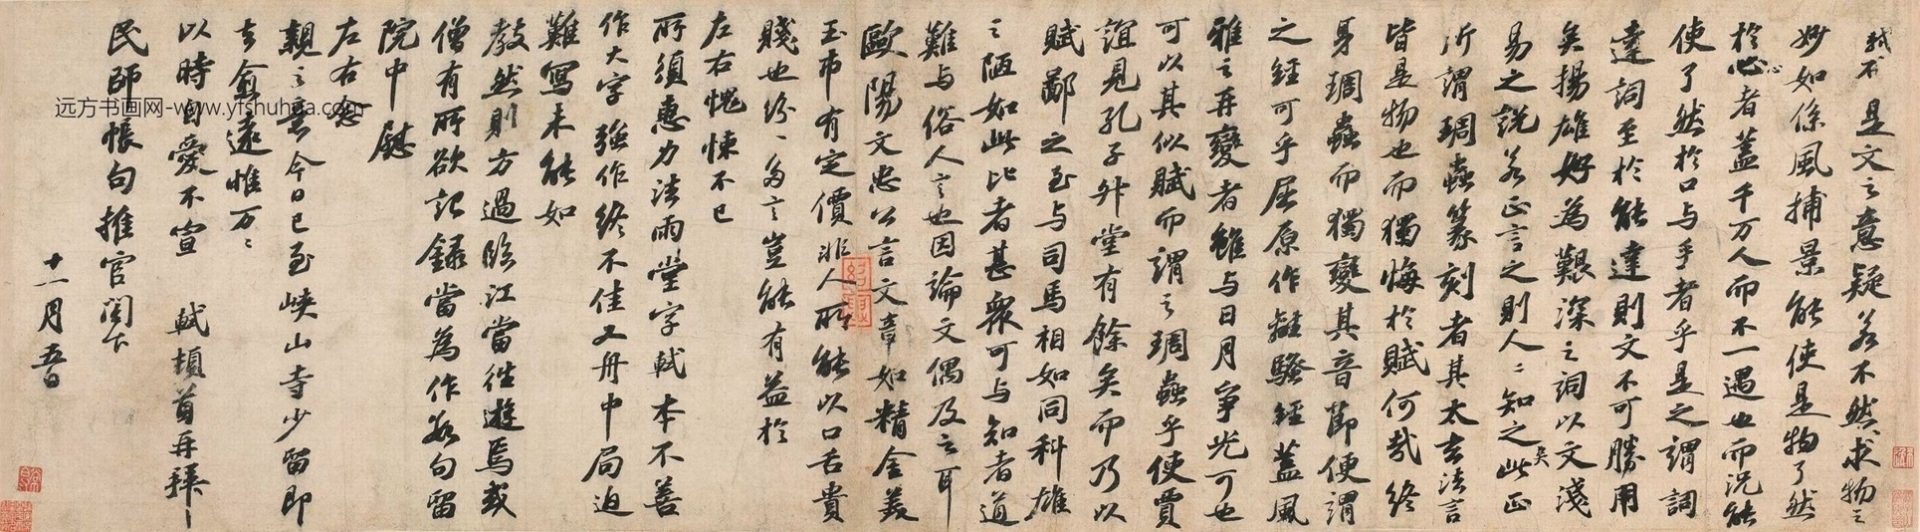 軾 是文之意疑若不然求物之
妙如係風捕景能使是物了然
於心者蓋千万人而不一遇也而況能
使了然於口与手者乎是之謂詞
達詞至於能達則文不可勝用
矣揚雄好為艱深之詞以文淺
易之說若正言之則人〻知之矣此正
所謂琱蟲篆刻者其太玄法言
皆是物也而獨悔於賦何哉終
身琱蟲而獨變其音節便謂
之經可乎屈原作離騷經蓋風
雅之再變者雖与日月爭光可也
可以其似賦而謂之琱蟲乎使賈
誼見孔子升堂有餘矣而乃以
賦鄙之至与司馬相如同科雄
之陋如此比者甚眾可与知者道
難与俗人言也因論文偶及之耳
歐陽文忠公言文章如精金美
玉市有定價非人所能以口舌貴
賤也紛〻多言豈能有益於
左右愧悚不已
所須惠力法雨堂字軾本不善
作大字強作終不佳又舟中局迫
難寫未能如
教然則方過臨江當往遊焉或
僧有所欲記錄當為作數句留
院中慰
左右念
親之意今日已至峽山寺少留即
去愈遠惟万〻
以時自愛不宣 軾頓首再拜
民師帳句推官閣下
十一月五日
远方书画网-www.yfshuhua.com